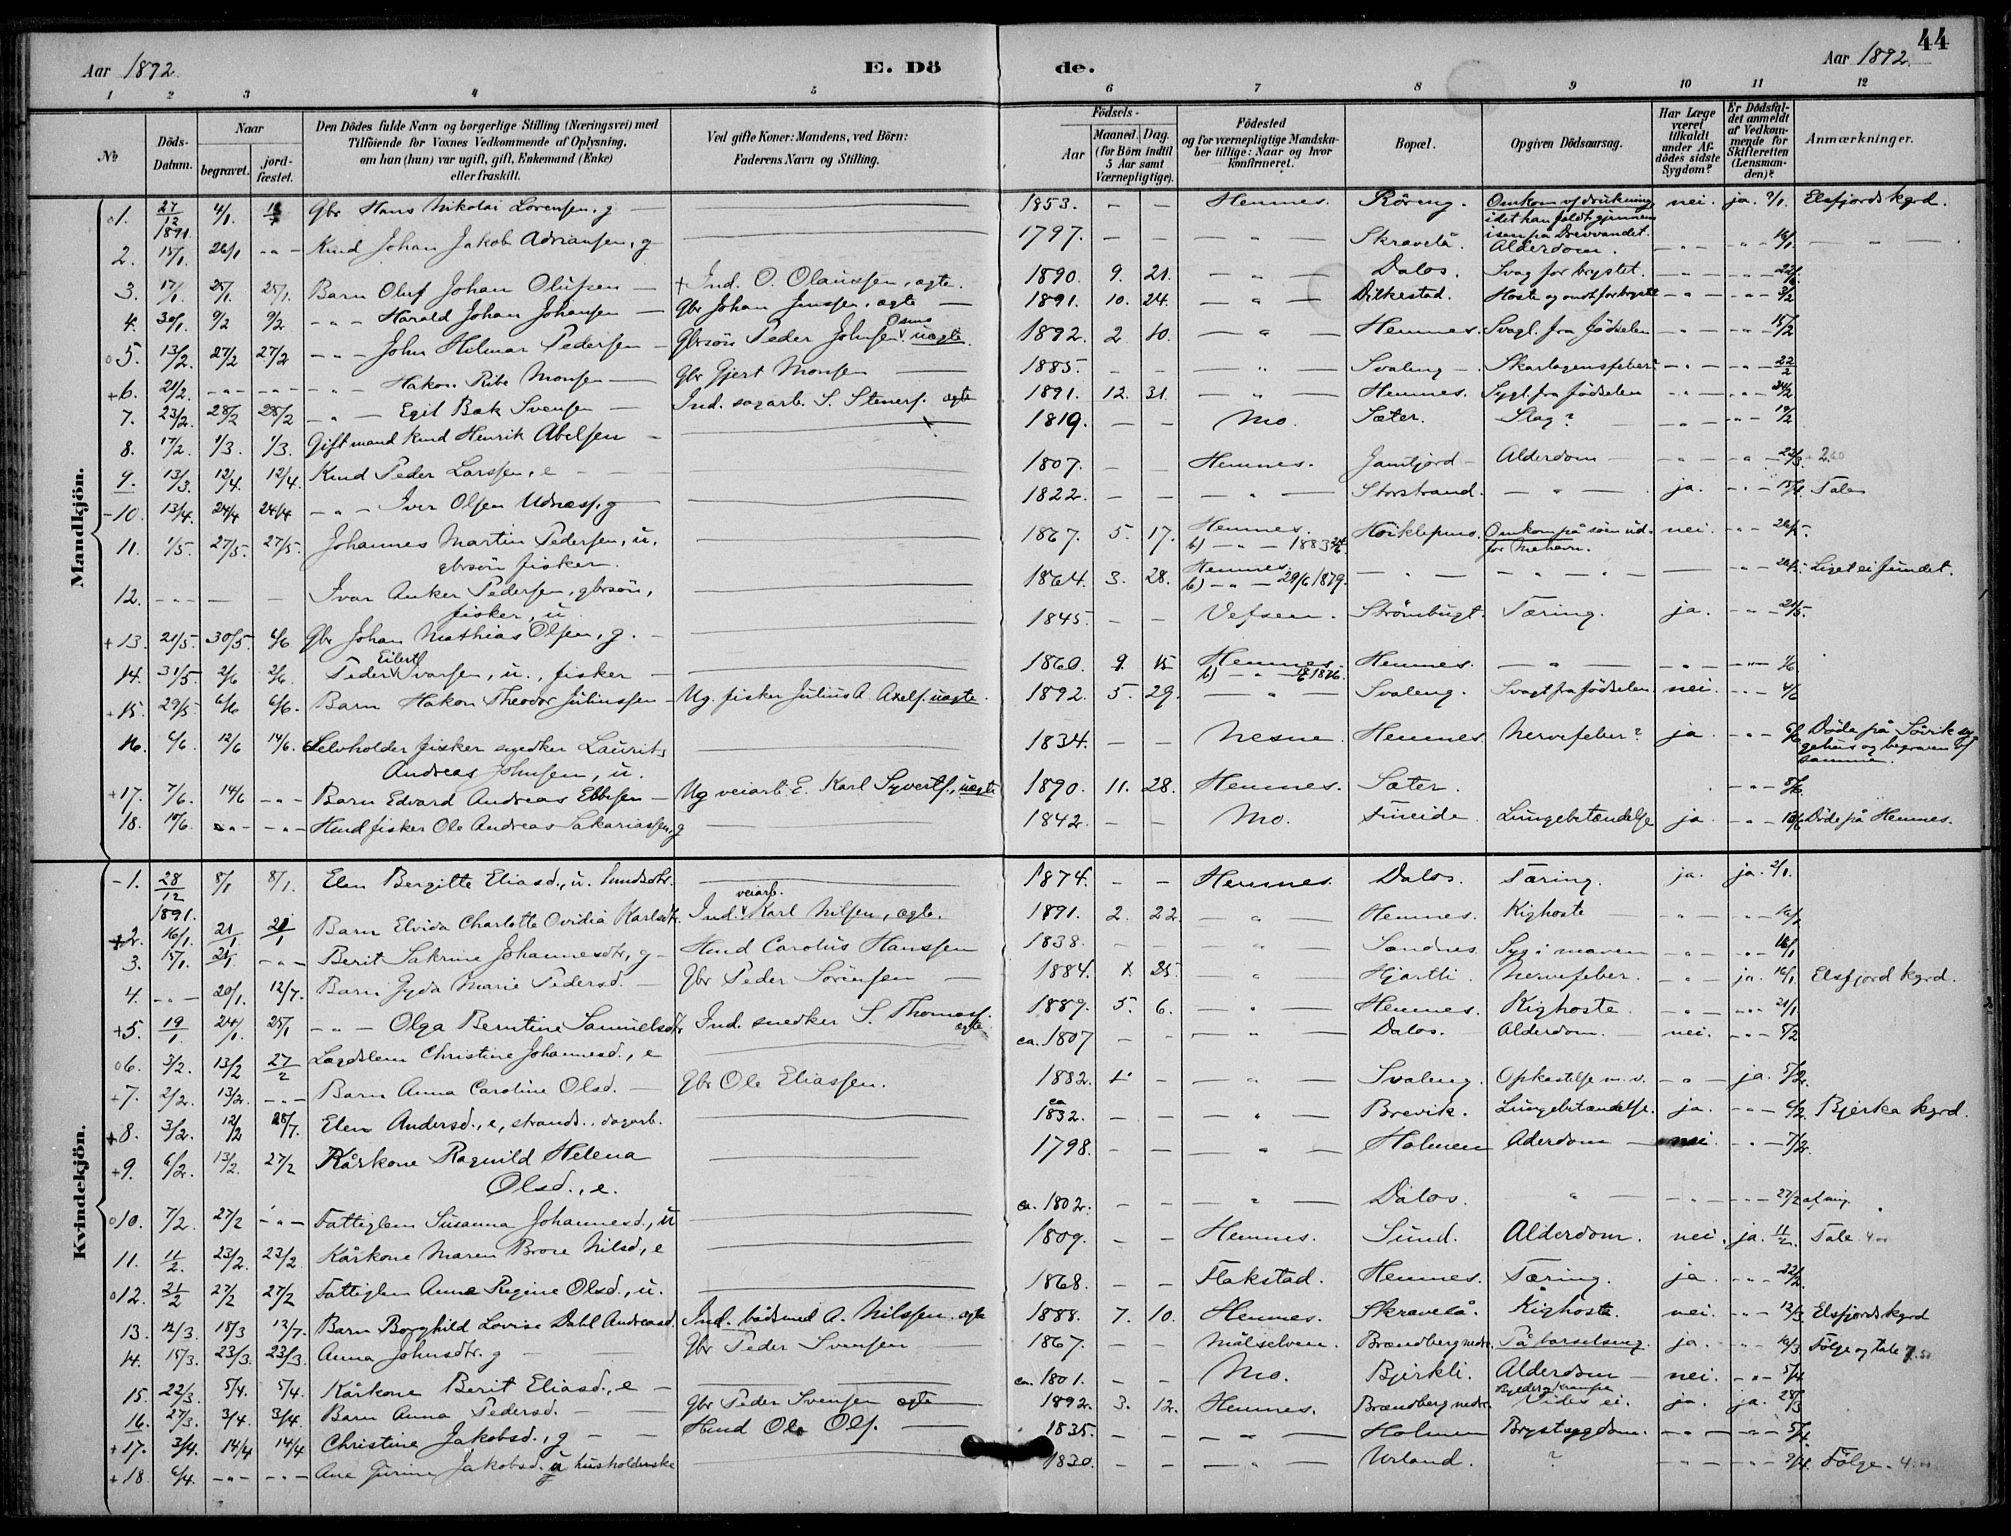 44
Aar 1892. E. Dö de. Aar 1892.
1 2 3 4 5 6 7 8 9 10 11 12
№
Döds-Datum.
Naar
begravet. jordfæstet.
Den Dödes fulde Navn og borgerlige Stilling (Næringsvei) med
Tilföiende for Voxnes Vedkommende af Oplysning,
om han (hun) var ugift, gift, Enkemand (Enke)
eller fraskilt.
Ved gifte Koner: Mandens, ved Börn:
Faderens Navn og Stilling.
Födsels-
Aar Maaned. Dag.
(for Börn indtil 5 Aar samt Værnepligtige).
Födested
og for værnepligtige Mandskaber tillige: Naar og hvor konfirmeret.
Bopæl.
Opgiven Dödsaarsag.
Har Læge været tilkaldt under Afdödes sidste Sygdom?
Er Dödsfaldet anmeldt af Vedkommende for Skifteretten (Lensmanden)?
Anmærkninger.
Mandkjön.
1. 27/12 1891. 4/1. Gbr Hans Nikolai Lorensen, g — 1853. — — Hemnes. Röreng. Omkom v/ drukning idet han faldt gjennem isen på Drevvandet. nei. ja. Elsfjords kgrd.
2. 15/1. 26/1 -"- Kund Johan Jakob Adriansen, g 1797. — — -"- Skravelå. Alderdom. -"- -"-
3. 17/1. 25/1. 25/1. Barn Oluf Johan Olufsen — + Ind. O. Olaussen, ægte. 1890. 9. 21. -"- Dalos. Svag for brystet. -"- -"-
4. 30/1. 9/2 9/2 -"- Harald Johan Johansen — Gbr Johan Jenssen, ægte — 1891. 10. 24. -"- Dilkestad. Hoste og ondt for brystet -"- -"- 3/2
5. 13/2. 27/2 27/2 -"- John Hilmar Pedersen — Gbrsön Peder Johnsen uægte. 1892. 2 10. -"- Hemnes. Svagl. fra födselen -"- -"- 15/2
+6. 21/2. -"- -"- -"- Hakon Ribe Monsen — Gbr Gjert Monsen — 1885. — — -"- Svaleng -. Skarlagensfeber -"- -"- 22/2
7. 23/2. 28/2 28/2 -"- Egil Bak Svensen — Ind. sagarb. S. Steners. ægte 1891. 12. 31. -"- Hemnes. Sygl. fra födselen -"- -"- 24/2
8. 17/2. 1/3. 1/3. Gift mand kund Henrik Abelsen — 1819. — — Mo. Sæter. Slag? -"- -"- 19/2
9. 13/3. 12/4. 12/4. Kund Peder Larssen, e — 1807. — — Hemnes. Jamtjord — Alderdom — -"- -"- 22/3
-10. 13/4. 24/4 24/4 -"- Iver Olsen Udnæss, g 1822. — — -"- Storstrand. -"- ja. -"- 15/4. Tale
11. 1/5. 27/5. 27/5. Johannes Martin Pedersen, u.
gbrsön fisker.
1867. 5. 17. Hemnes. b) -"- 1883 Omkom på söen ud for Mehavn. nei. -"- 26/5.
12. -"- — — Ivar Anker Pedersen, gbrsön,
fisker, u
1864. 3. 28. Hemnes. b) -"- 29/6 1879. -"- -"- -"- -"- Liget ei fundet.
+13. 21/5. 30/5. 6/6 Gbr Johan Mathias Olsen, g. — 1845. — — Vefsen. Strömbugt. Tæring. ja. -"- 21/5.
14. 31/5 2/6 2/6. Peder Eilert Ivarsen, u., fisker — 1860. 9. 15. Hemnes. b) -"- Hemnes. -"- -"- -"- 1/6
+15. 29/5 6/6 6/6. Barn Hakon Theodor Juliussen — Ug. fisker Julius A. Axels. uægte. 1892. 5. 29. -"- Svaleng. Svagt fra födselen. nei. -"- 4/6
16. 6/6. 12/6 14/6. Selvholder fisker snedker Laurits
Andreas Johnsen, u.
1834. — — Nesne. Hemnes. Nervefeber? ja. -"- Döde på Sövik sygehus og begraven af samme.
+17. 7/6. 14/6 -"- Barn Edvard Andreas Ebbesen — Ug veiarb. E. Karl Syverts., uægte 1890. 11. 28. Hemnes. Sæter. -"- 8/6.
18. 10/6. -"- -"- Hmd fisker Ole Andreas Sakariassen, g 1842. — — Mo. Fineide. Lungebetændelse ja. -"- Döde på Hemnes.
Kvindekjön.
-1. 28/12 1891. 8/1 8/1. Elen Bergitte Eliasd., u. — 1874. — — Hemnes. Dalos. Tæring. ja. ja. 2/1.
2. 16/1. 21/1 21/1 Barn Elvida Charlotte Ovidia Karlsdtr. Ind. veiarb. Karl Nilsen, ægte. 1891. 2. 22. -"- Hemnes. Kighoste -"- -"-
3. 15/1. -"- Berit Sakrine Johannesdtr, g — Hmd Carolus Hanssen 1838. — — -"- Sandnes. Syg i maven -"- -"-
4. -"- 20/1. 12/7. Barn Gyda Marie Pedersd. — Gbr Peder Sörensen — 1884. 25. -"- Hjartli. Nervefeber. -"- ja. Elsfjord kgrd.
+5. 19/1 24/1. 25/1 -"- Olga Berntine Samuelsdtr, Ind. snedker S. Thomass. ægte. 1889. 5. 6. -"- Hemnes. Kighoste. -"- -"- 21/1
06. 3/2. 13/2 27/2 Lægdslem Christine Johannesd., e ca. 1807 — — -"- Dalos. Alderdom. nei. -"- 5/2
+7. 2/2. 13/2. -"- Barn Anna Caroline Olsd. — Gbr Ole Eliassen. 1882. — -"- Svaleng. Opkastelse m.v. -"- ja. 5/2.
+8. 3/2. 12/2 Elen Andersd., e, strands. dagarb. — ca 1832. — — -"- Brevik. Lungebetændelse. ja. -"- 6/2. Bjerka kgrd.
+9. 6/2. 13/2. 27/2 Kårkone Ragnild Helena
Olsd., e.
1798. — — -"- Holmen Aderdom — nei. -"- 7/2.
010. 7/2. 27/2 -"- Fattiglem Susanna Johannesd., u ca. 1802. — — -"- Dalos. -"- -"- -"- 27/2
11. 11/2. 23/2. 23/2. Kårkone Maren Brose Nilsd, e 1809. — — Hemnes. Sund. Alderdom. nei. ja. 11/2. Tale
012. 21/2 27/2 27/2 Fattiglem Anne Regine Olsd., u. 1868. — — Flakstad. Hemnes. Tæring. ja. -"- 22/2.
13. 12/3. 18/3 13/7. Barn Borghild Lovise Dahl Andreasd. Ind. bådsmd A. Nilssen. ægte 1888. 7. 10. Hemnes. Skravelå. Kighoste. nei. -"- 12/3 Elsfjords kgrd
14. 15/3. 23/3. 23/3. Anna Johnsdtr. g — Gbr Peder Svensen — 1867. — — Målselven. Brændberg nedre. På barselseng. ja. -"- Fölge og tale
15. 22/3. 5/4. 5/4. Kårkone Berit Eliasd., e — ca. 1801. — — Mo. Bjerkli. Alderdom — nei. -"- 5/4.
16. 27/3. 3/4. 3/4. Barn Anna Pedersd. — Gbr Peder Svensen ægte 1892. 3. 12. Hemnes. Brændberg nedre. Vides ei. ja. ja. 28/3
+17. 3/4. 14/4 14/4 Christine Jakobsd., g — Hmd Ole Ols. — 1835. — — -"- Holmen Brystsygdom. -"- -"- 5/4
+18. 6/4. -"- -"- Ane Gurine Jakobsd. u husholderske 1830. — — -"- Urland. ? -"- -"- 9/4. Fölge.